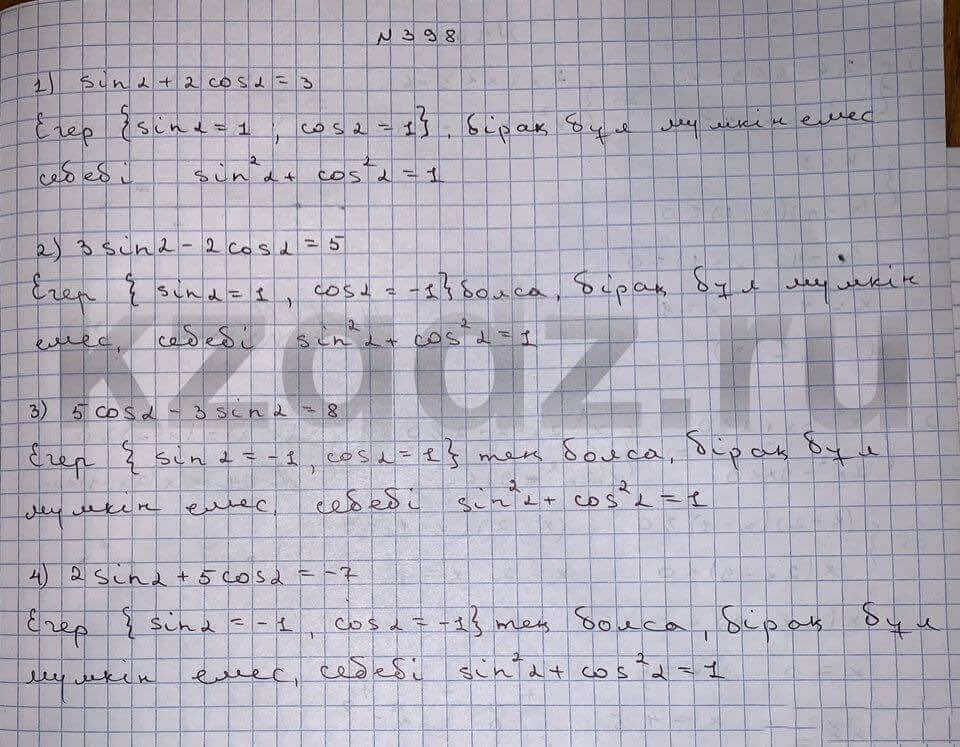 №398
1) sin α + 2 cos α = 3
Егер {sin α = 1 ; cos α = 1}, бірақ бұл мүмкін емес
себебі sin²α + cos²α = 1
2) 3 sin α - 2 cos α = 5
Егер { sin α = 1 , cos α = -1} болса, бірақ бұл мүмкін
емес, себебі sin²α + cos²α = 1
3) 5 cos α - 3 sin α = 8
Егер { sin α = -1 , cos α = 1} тең болса, бірақ бұл
мүмкін емес, себебі sin²α + cos²α = 1
4) 2 sin α + 5 cos α = -7
Егер { sin α = -1 , cos α = -1} тең болса, бірақ бұл
мүмкін емес, себебі sin²α + cos²α = 1
kzgdz.ru